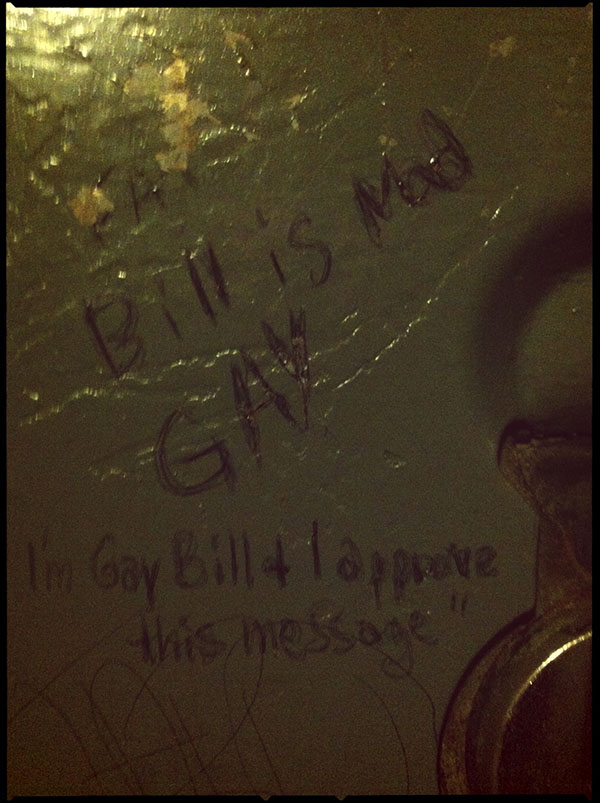 Bill is Mad
GAY
I'm Gay Bill & I approve
this message"